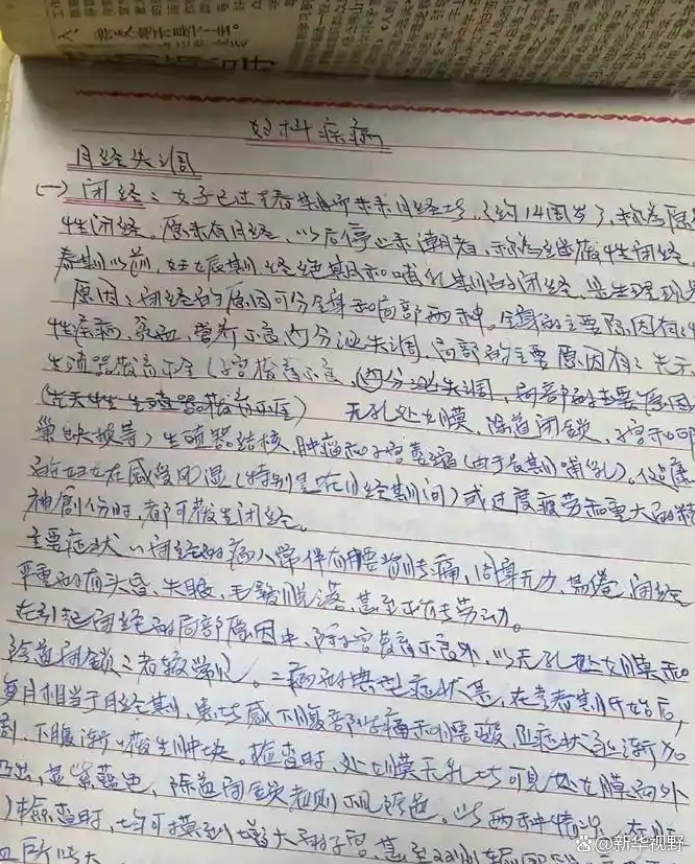 妇科疾病
月经失调
(一) 闭经：女子已过青春期而未来月经者，(约14周岁)，称为原
性闭经。原来有月经，以后停止来潮者，称为继发性闭经。
春期以前，妊娠期，经绝期和哺乳期的闭经，是生理现象
原因：闭经的原因可分全身和局部两种。全身的主要原因有：
性疾病，贫血，营养不良，内分泌失调，局部的主要原因有：先天
生殖器发育不全(子宫发育不良，内分泌失调，局部的主要原因
(先天性生殖器发育不全) 无孔处女膜，阴道闭锁，子宫和卵
巢缺损等)生殖器结核，肿瘤和子宫萎缩(由于长期哺乳)。
妇女在感受风湿(特别是在月经期间)或过度疲劳和重大的精
神创伤时，都可发生闭经。
主要症状：闭经的病人常伴有腰背疼痛，周身无力，易倦，闭经
严重的有头昏、失眠、毛发脱落、甚至不能劳动。
在引起闭经的局部原因中，除子宫发育不良外，以无孔处女膜和
阴道闭锁二者较常见。二病的典型症状是，在青春期开始后，
每月相当于月经期，患者感下腹部疼痛和腰酸，且症状逐渐加
剧，下腹渐渐发生肿块。检查时，处女膜无孔者可见处女膜向外
凸出，显紫蓝色，阴道闭锁者则不见阴道。此两种情况，在
检查时，均可摸到增大的子宫，甚至
新华视野